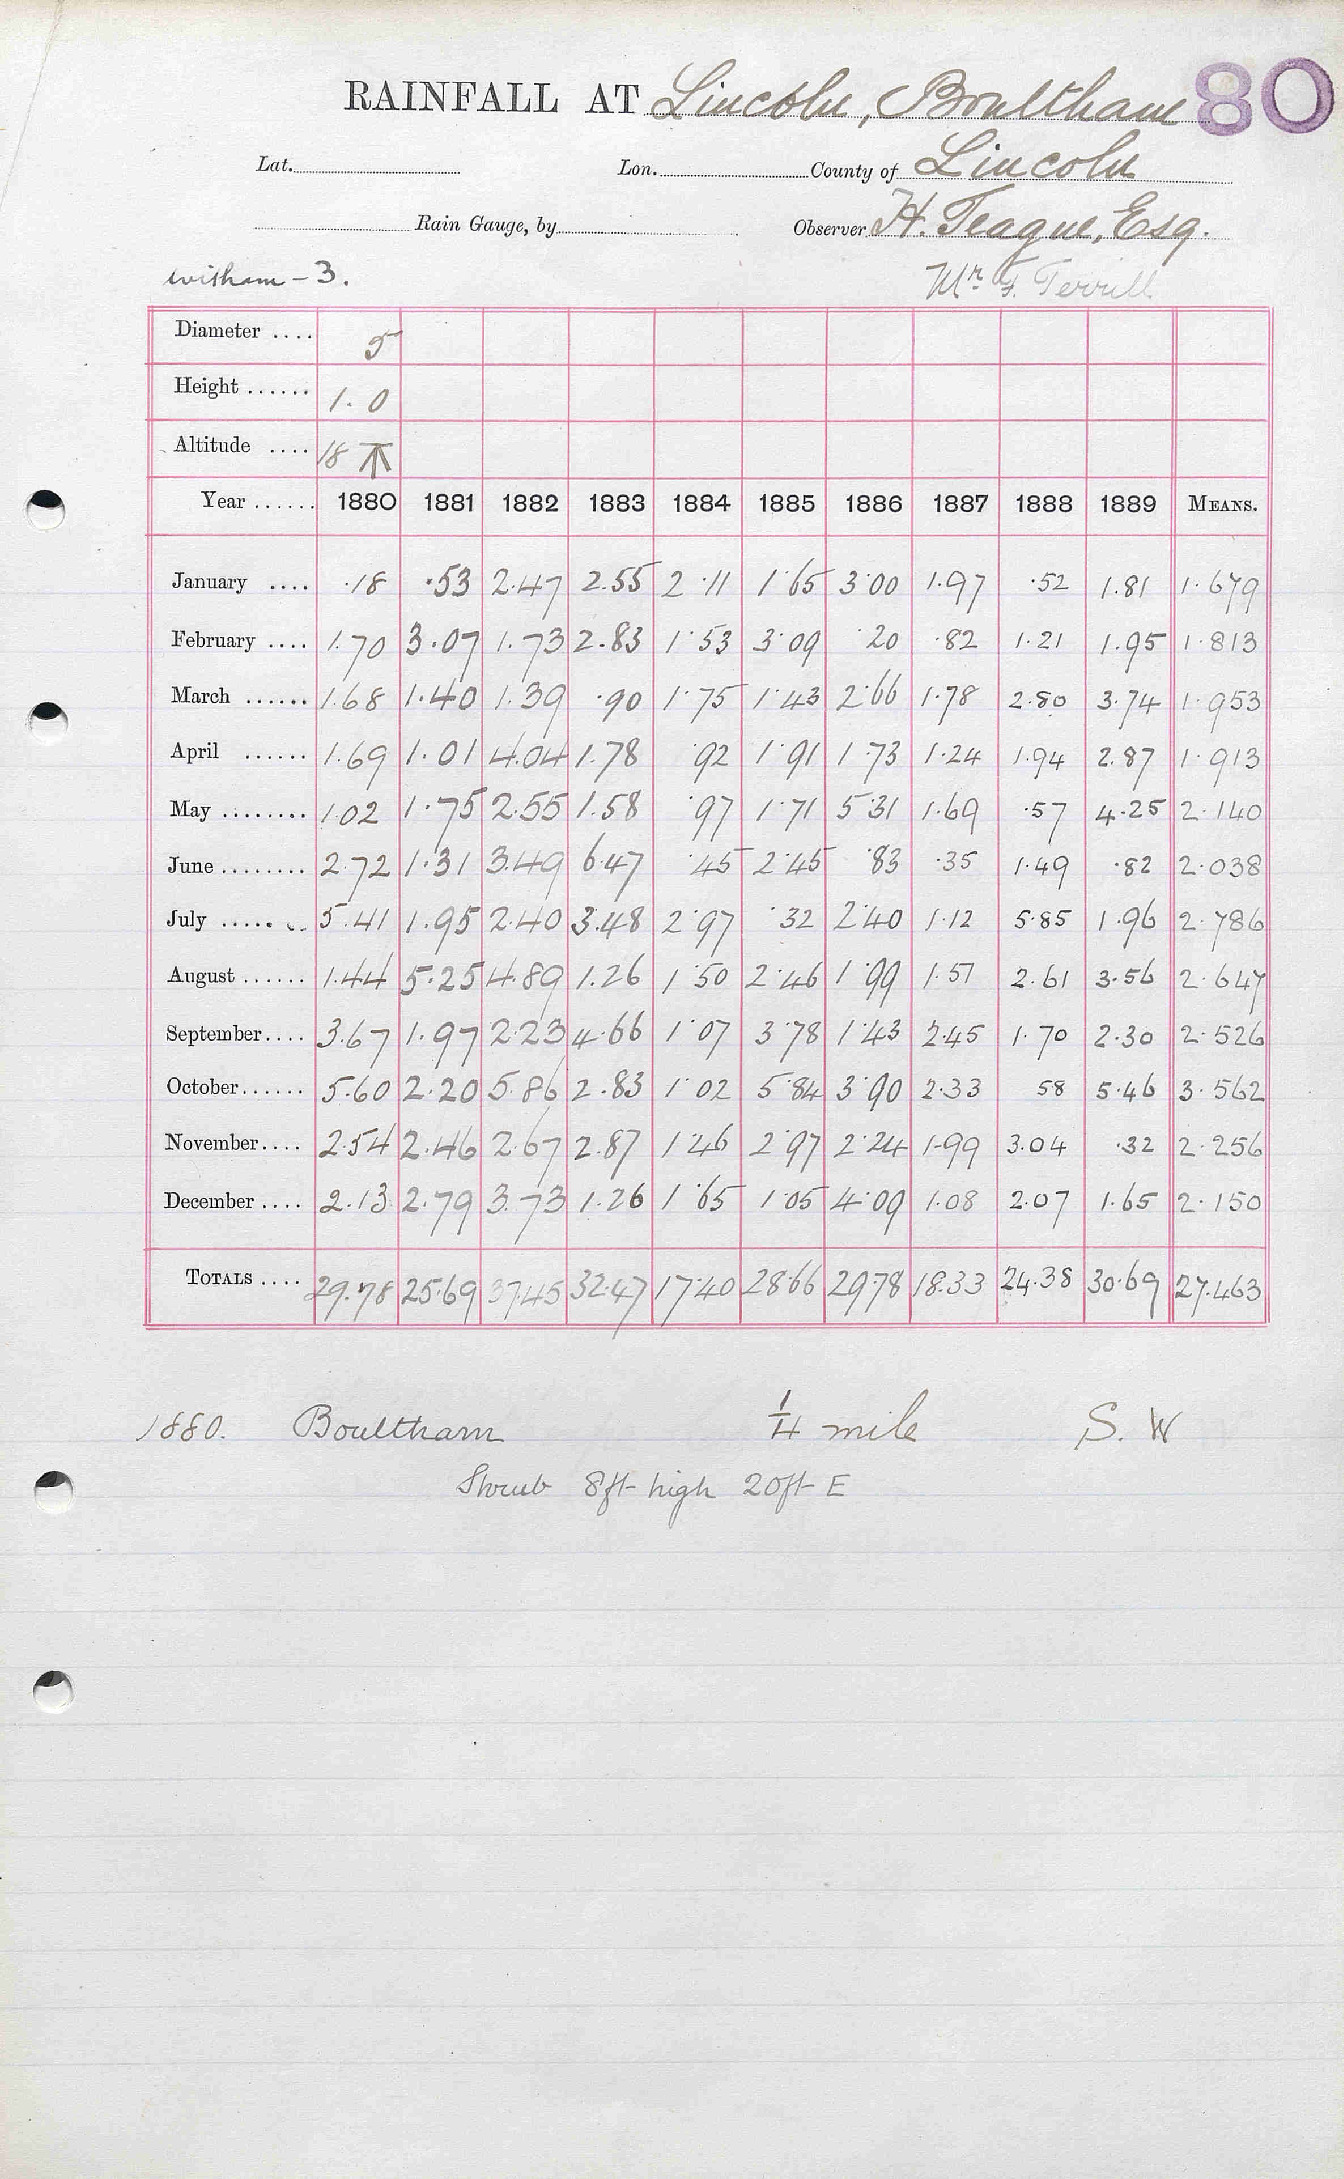 RAINFALL AT Lincoln, Boultham 80
Lat. Lon. County of Lincoln
Rain Gauge, by Observer H. Teague, Esq.
Witham - 3. Mr F. Terrill
Diameter .... 5
Height ...... 1.0
Altitude .... 18
Year ...... 1880 1881 1882 1883 1884 1885 1886 1887 1888 1889 MEANS.
January .... .18 .53 2.47 2.55 2.11 1.65 3.00 1.97 .52 1.81 1.679
February .... 1.70 3.07 1.73 2.83 1.53 3.09 .20 .82 1.21 1.95 1.813
March ...... 1.68 1.40 1.39 .90 1.75 1.43 2.66 1.78 2.80 3.74 1.953
April ...... 1.69 1.01 4.04 1.78 .92 1.91 1.73 1.24 1.94 2.87 1.913
May ........ 1.02 1.75 2.55 1.58 .97 1.71 5.31 1.69 .57 4.25 2.140
June ........ 2.72 1.31 3.49 6.47 .45 2.45 .83 .35 1.49 .82 2.038
July ........ 5.41 1.95 2.40 3.48 2.97 .32 2.40 1.12 5.85 1.96 2.786
August ...... 1.44 5.25 4.89 1.26 1.50 2.46 1.99 1.57 2.61 3.56 2.647
September.... 3.67 1.97 2.23 4.66 1.07 3.78 1.43 2.45 1.70 2.30 2.526
October...... 5.60 2.20 5.86 2.83 1.02 5.84 3.90 2.33 58 5.46 3.562
November.... 2.54 2.46 2.67 2.87 1.46 2.97 2.24 1.99 3.04 .32 2.256
December .... 2.13 2.79 3.73 1.26 1.65 1.05 4.09 1.08 2.07 1.65 2.150
TOTALS .... 29.78 25.69 37.45 32.47 17.40 28.66 29.78 18.33 24.38 30.69 27.463
1880. Boultham 1/4 mile S. W
Shrub 8ft high 20ft E